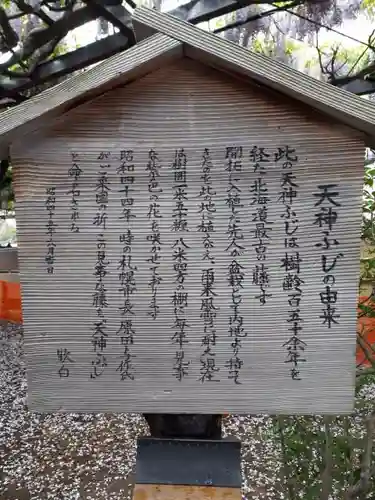 天神ふじの由来
此の天神ふじは樹齢百五十余年を
経た北海道最古の藤です
開拓に入植した先人が盆栽として内地より持て
きたのを此の地に植かえ、雨東風雪に耐え現在
樹囲一米五十糎、八米四方の棚に毎年見事
な紫色の花を咲かせて居ます
昭和四十四年時の札幌市長原田与作氏
がいつ栗園を訪つこの見事な藤を「天神ふじ」
と命名された
昭和四十六年六月廿日
敬白